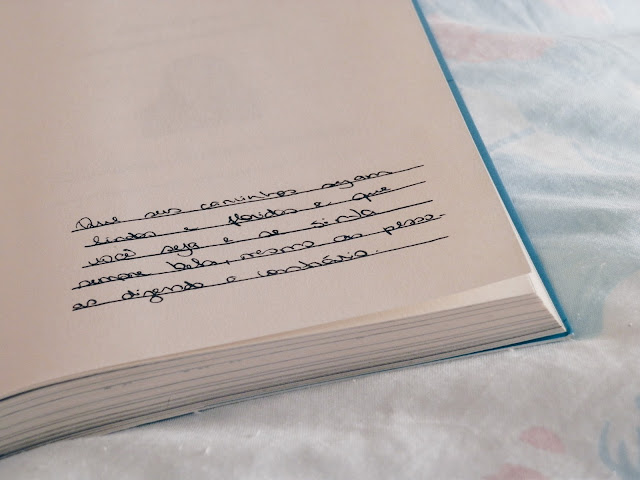 Que seus caminhos sejam
lindos e floridos e, que
você seja e se sinta
sempre bela, mesmo as pesso-
as dizendo o contrário.